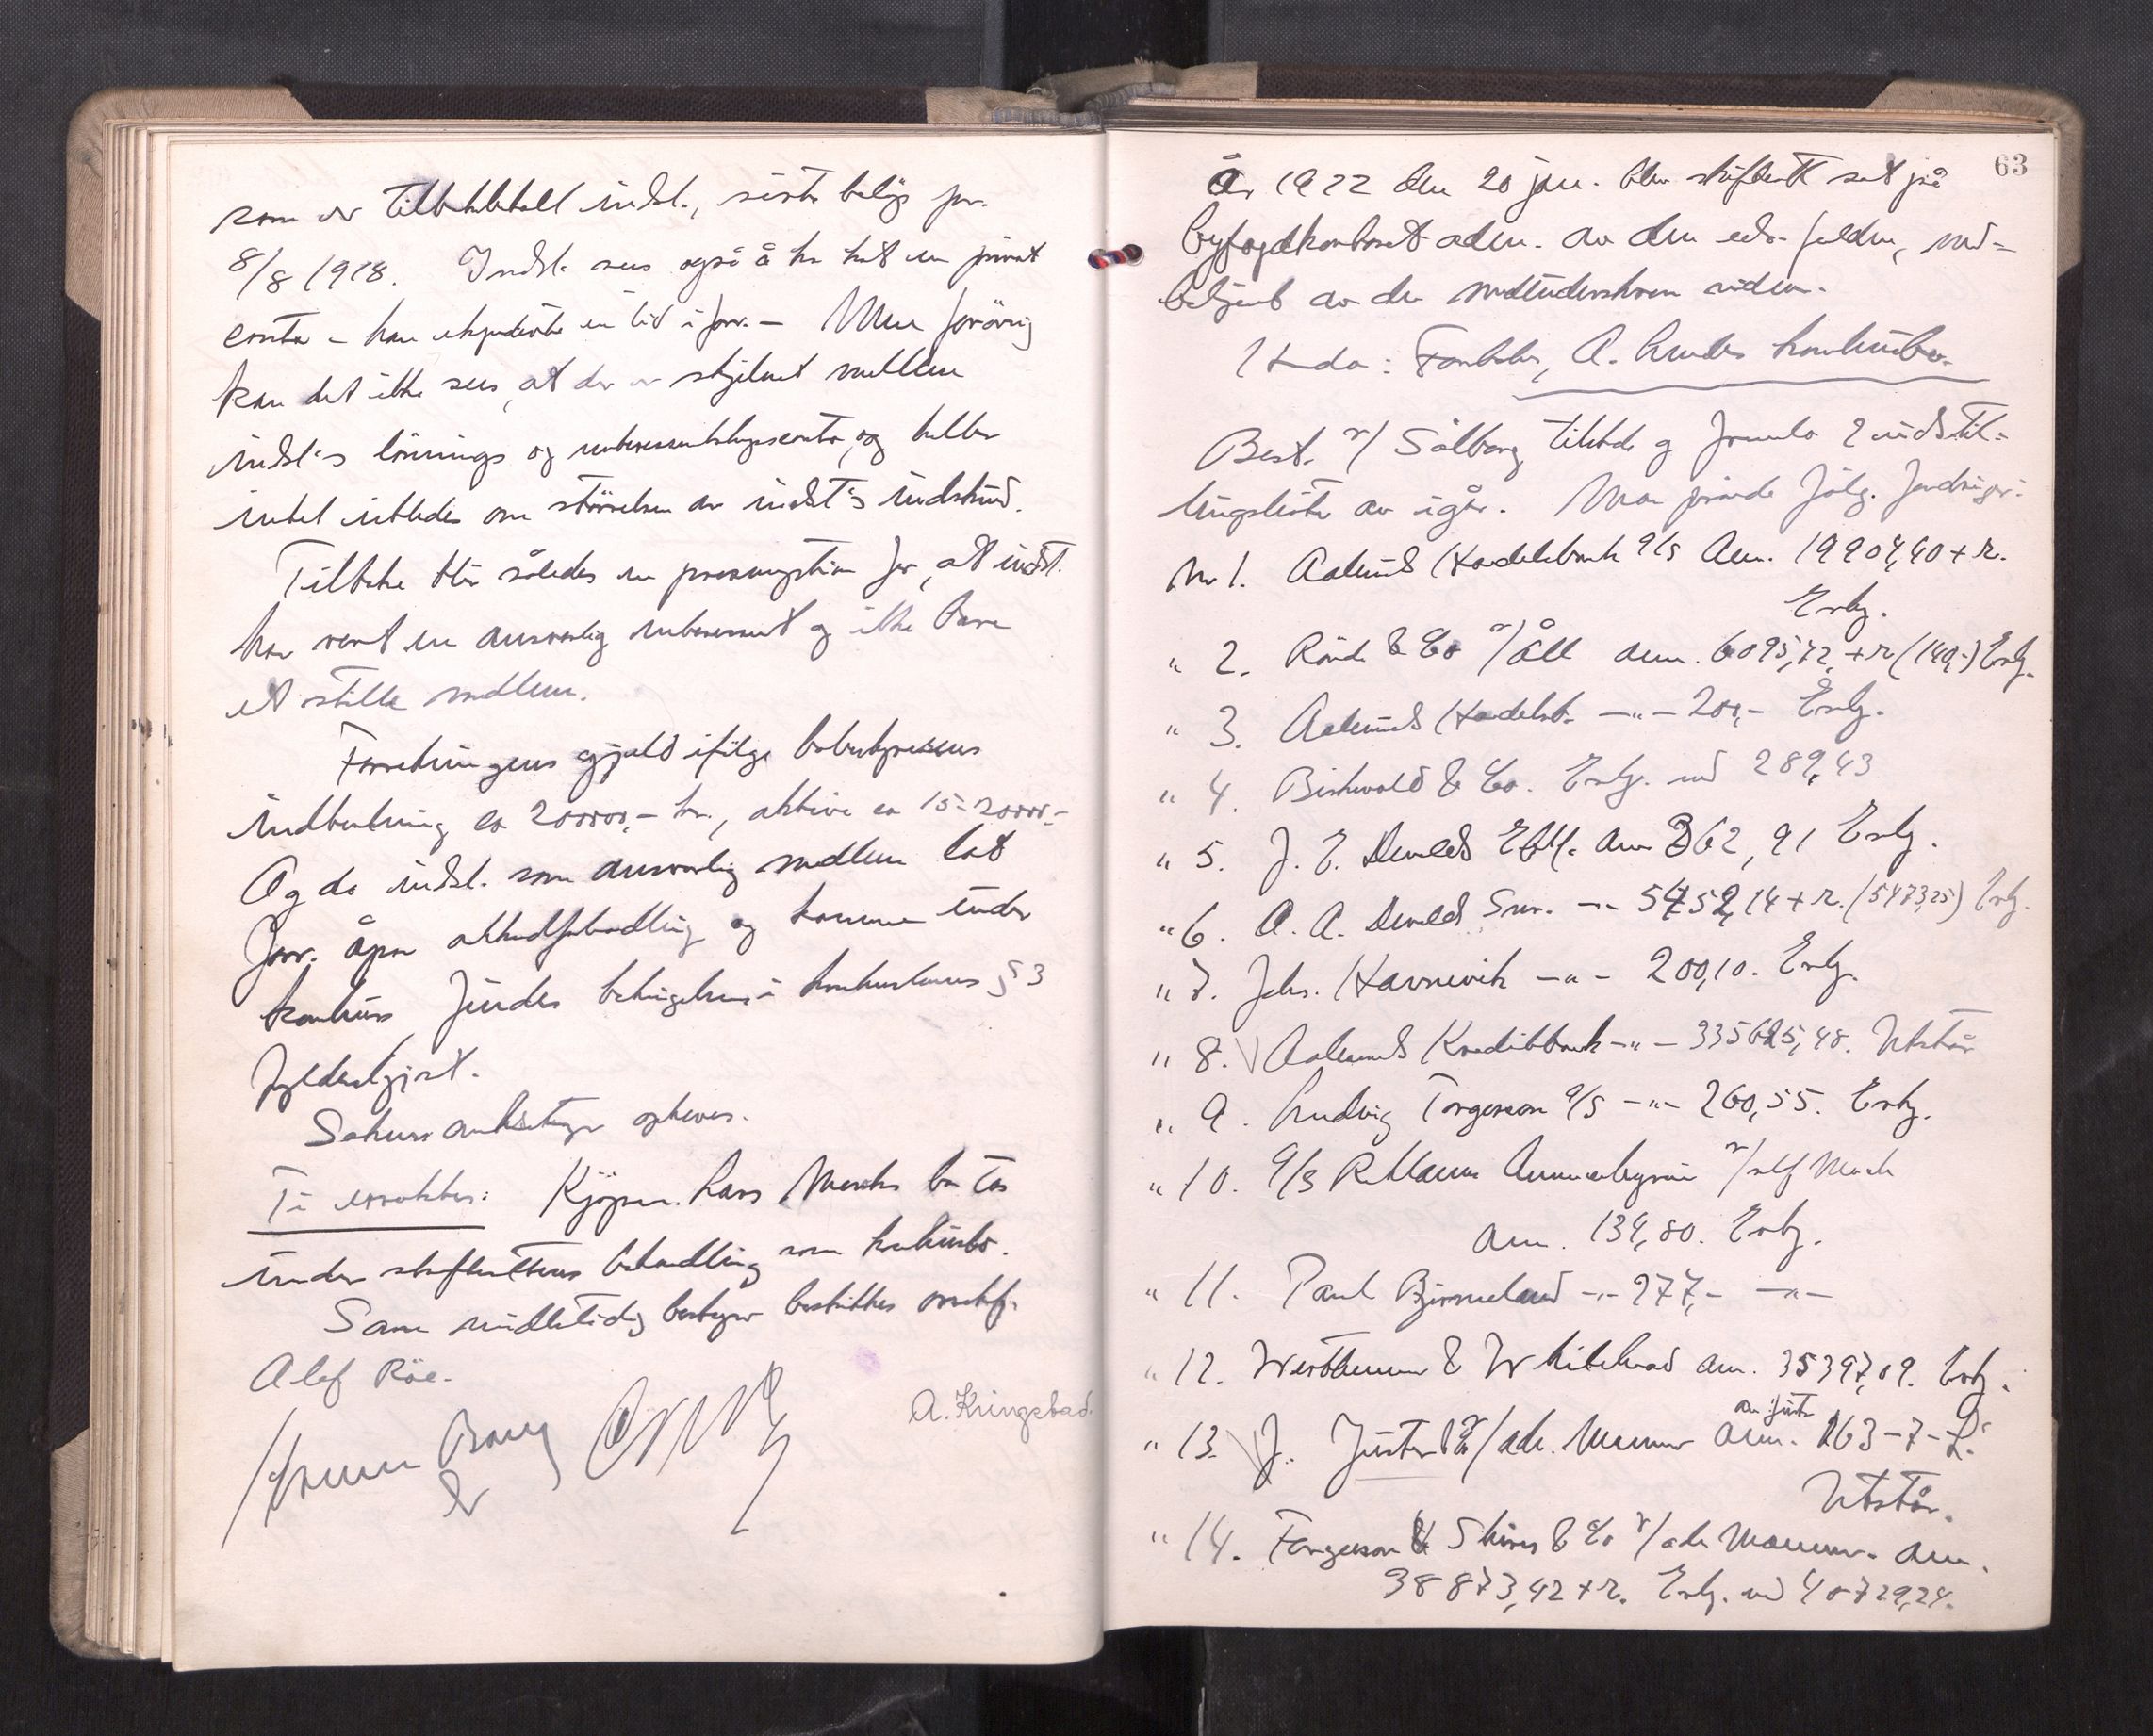 som er tilbakebetalt indst., siste beløp pr.
8/8 1918. Indst. sees også å ha hat en privat
conto - han ekspederte en tid i forr. - Men forøvrig
kan det ikke sees, at der er skjelnet mellem
indst's lönnings og interessentskapsconto, og heller
intet utledes om størrelsen av indst's indskud.
Tilbake blir således en presumption for, at indst.
har vært en ansvarlig interessent og ikke bare
et stille medlem.
Forretningens gjæld ifölge
indberetning ca 200000,- kr., aktiva ca 15-20000,-
Og da indst. som ansvarlig medlem lot
forr. åpne akkordforhandling og komme under
konkurs findes betingelsene i konkurslovens § 3
fyldestgjort.
Saksomkostninger opheves.
Ti eragtes: Kjøpm. Lars bør tas
under skifterettens behandling som konkursbo.
Som midlertidig bestyrer beskikkes overrsf.
Olaf Röe.
A. Kringstad
63
År 1922 den 20 jan. blev skifterett sat på
byfogdkontoret adm. av den eds. fuldm., med-
betjent av de medunderskrevne vidner.
Hvda: A. Lundes konkursbo.
Best. v/ Solberg tilstede og fremla 2 indstil-
lingslister av igår. Man prövede fölg. fordringer:
Nr 1. Aalesunds Handelsbank a/s Anm. 19904,40 + r.
Erkj.
" 2. & Co v/ anm. 6095,72 + r (140,-) Erkj.
" 3. Aalesunds Handelsb. -"- 200,- Erkj.
" 4. Birkevold & Co. Erkj. med 289,43
" 5. J. E. Devolds Eftf. anm 362,91 Erkj.
" 6. O. A. Devolds Snr. -"- 5452,14 + r. (5473,25) Erkj.
" 7. Johs. Havnevik -"- 200,10. Erkj.
" 8. Aalesunds Kreditbank -"- 335625,48. Utstår
" 9. Ludvig Torgersen a/s -"- 260,55. Erkj.
" 10. a/s Reklame Annoncebyrau v/
anm. 134,80. Erkj.
" 11. Paul Bjørneland -"- 277,- -"-
" 12. & Whitehead anm. 35397,09. Erkj.
" 13. J. Juster v/ adv. anm. 163-7-£
Utstår.
" 14. Ferguson Shires & Co v/ adv. anm.
38873,42 + r. Erkj. med 40729,24.